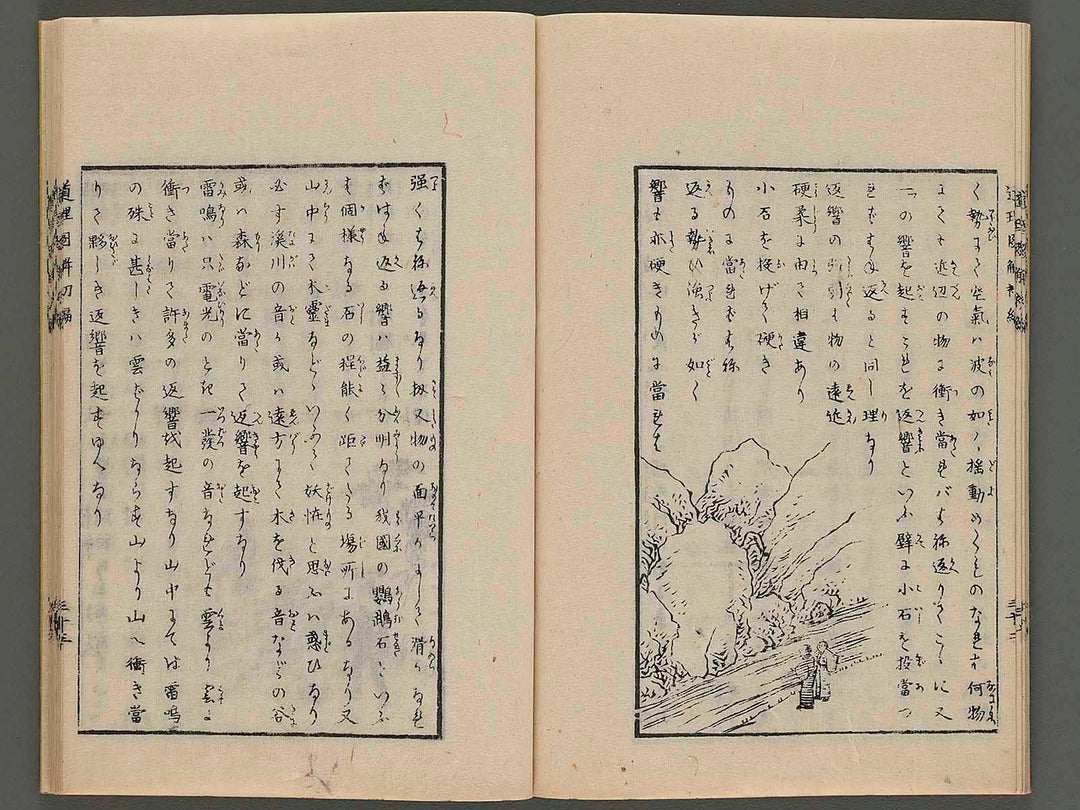 く勢にて空氣ハ波の如く搖動めくものなれば何物
にても近辺の物に衝き當れバはね返りてこゝに又
一つの響を起すこれを返響といふ壁に小石を投當つ
ればはね返ると同し理なり
返響の強弱も物の遠近
硬柔に由て相違あり
小石を投げて硬き
ものに當ればはね
返る勢ひ強きが如く
響も亦硬きものに當れば
強くはね返るなり扨又物の面平かにして滑かなれ
ばはね返る響ハ益々分明なり我國の鸚鵡石といふ
も個様なる石の程能く距たる場所にあるなり又
山中にて木靈などゝいふて妖怪と思ふハ惑ひなり
必す溪川の音か或ハ遠方にて木を伐る音などの谷
或ハ森などに當りて返響を起すなり
雷鳴ハ只電光のとき一發の音なれども雲より雲に
衝き當りて許多の返響を起すなり山中にては雷鳴
の殊に甚しきハ雲ばかりならす山より山へ衝き當
りて夥しき返響を起すゆへなり
道理圖解初編
三十三